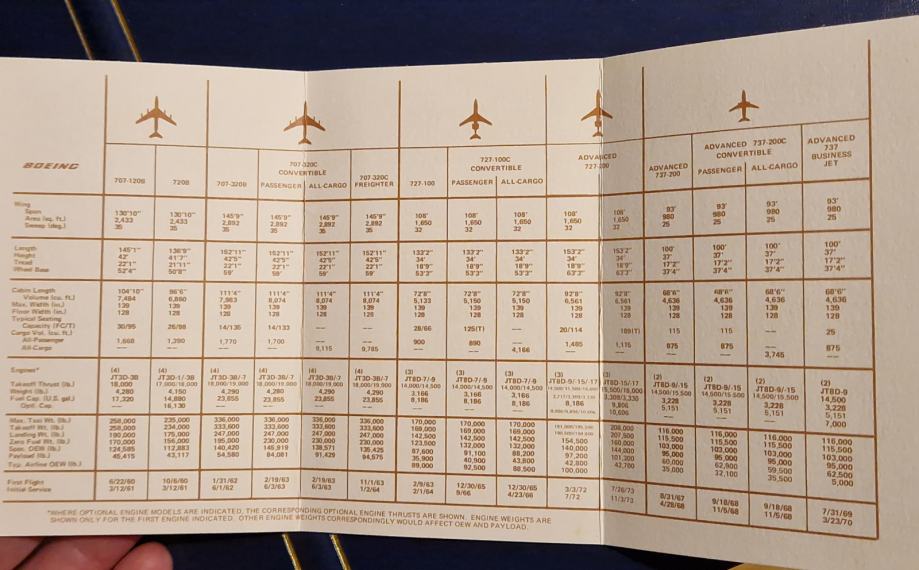 BOEING
707-120B 720B 707-320B 707-320C CONVERTIBLE PASSENGER ALL-CARGO 707-320C FREIGHTER 727-100 727-100C CONVERTIBLE PASSENGER ALL-CARGO ADVANCED 727-200 ADVANCED 737-200 ADVANCED 737-200C CONVERTIBLE PASSENGER ALL-CARGO ADVANCED 737 BUSINESS JET
Wing
Span 130'10" 130'10" 145'9" 145'9" 145'9" 145'9" 108' 108' 108' 108' 108' 93' 93' 93' 93'
Area (sq. ft.) 2,433 2,433 2,892 2,892 2,892 2,892 1,650 1,650 1,650 1,650 1,650 980 980 980 980
Sweep (deg.) 35 35 35 35 35 35 32 32 32 32 32 25 25 25 25
Length 145'1" 136'9" 152'11" 152'11" 152'11" 152'11" 133'2" 133'2" 133'2" 153'2" 153'2" 100' 100' 100' 100'
Height 42' 41'7" 42'5" 42'5" 42'5" 42'5" 34' 34' 34' 34' 34' 37' 37' 37' 37'
Tread 22'1" 21'11" 22'1" 22'1" 22'1" 22'1" 18'9" 18'9" 18'9" 18'9" 18'9" 17'2" 17'2" 17'2" 17'2"
Wheel Base 52'4" 50'8" 59' 59' 59' 59' 53'3" 53'3" 53'3" 63'3" 63'3" 37'4" 37'4" 37'4" 37'4"
Cabin Length 104'10" 96'6" 111'4" 111'4" 111'4" 111'4" 72'8" 72'8" 72'8" 92'8" 92'8" 68'6" 68'6" 68'6" 68'6"
Volume (cu. ft.) 7,484 6,860 7,983 8,074 8,074 8,074 5,133 5,150 5,150 6,561 6,561 4,636 4,636 4,636 4,636
Max. Width (in.) 139 139 139 139 139 139 139 139 139 139 139 139 139 139 139
Floor Width (in.) 128 128 128 128 128 128 128 128 128 128 128 128 128 128 128
Typical Seating
Capacity (FC/T) 30/95 26/88 14/135 14/133 — 28/66 125(T) — 20/114 189(T) 115 115 — 25
Cargo Vol. (cu. ft.)
All-Passenger 1,668 1,390 1,770 1,700 — — 900 890 — 1,485 1,175 875 875 — 875
All-Cargo — — — — 9,115 9,785 — — 4,166 — — — — 3,745 —
Engines* (4) (4) (4) (4) (4) (4) (3) (3) (3) (3) (3) (2) (2) (2) (2)
JT3D-3B JT3D-1/-3B JT3D-3B/-7 JT3D-3B/-7 JT3D-3B/-7 JT3D-3B/-7 JT8D-7/-9 JT8D-7/-9 JT8D-7/-9 JT8D-9/-15/-17 JT8D-15/-17 JT8D-9/-15 JT8D-9/-15 JT8D-9/-15 JT8D-9
Takeoff Thrust (lb.) 18,000 17,000/18,000 18,000/19,000 18,000/19,000 18,000/19,000 18,000/19,000 14,000/14,500 14,000/14,500 14,000/14,500 14,500/15,500 14,500/15,500 14,500/15,500 14,500
Weight (lb.) 4,280 4,150 4,290 4,290 4,290 4,290 3,166 3,166 3,166 3,228 3,228 3,228
Fuel Cap. (U.S. gal.) 17,320 14,880 23,855 23,855 23,855 23,855 8,186 8,186 8,186 8,186 5,151 5,151 5,151 5,151
Opt. Cap. — 16,130 — — — — — — — 10,606 — — — 7,000
Max. Taxi Wt. (lb.) 258,000 235,000 336,000 336,000 336,000 336,000 170,000 170,000 170,000 208,000 116,000 116,000 116,000 116,000
Takeoff Wt. (lb.) 258,000 234,000 333,600 333,600 333,600 333,600 169,000 169,000 169,000 207,500 115,500 115,500 115,500 115,500
Landing Wt. (lb.) 190,000 175,000 247,000 247,000 247,000 247,000 142,500 142,500 142,500 154,500 160,000 103,000 103,000 103,000 103,000
Zero Fuel Wt. (lb.) 170,000 156,000 195,000 230,000 230,000 230,000 123,500 132,000 132,000 140,000 144,000 95,000 95,000 95,000 95,000
Spec. OEW (lb.) 124,585 112,883 140,420 145,919 138,571 135,425 87,600 91,100 88,200 97,200 101,300 60,000 62,900 59,500 62,500
Payload (lb.) 45,415 43,117 54,580 84,081 91,429 94,575 35,900 40,900 43,800 42,800 42,700 35,000 32,100 35,500 5,000
Typ. Airline OEW (lb.) 89,000 92,500 88,500 100,000
First Flight 6/22/60 10/6/60 1/31/62 2/19/63 2/19/63 11/1/63 2/9/63 12/30/65 12/30/65 3/3/72 7/26/73 8/31/67 9/18/68 9/18/68 7/31/69
Initial Service 3/12/61 3/12/61 6/1/62 6/3/63 6/3/63 1/2/64 2/1/64 9/66 4/23/66 7/72 11/3/73 4/28/68 11/5/68 11/5/68 3/23/70
*WHERE OPTIONAL ENGINE MODELS ARE INDICATED, THE CORRESPONDING OPTIONAL ENGINE THRUSTS ARE SHOWN. ENGINE WEIGHTS ARE
SHOWN ONLY FOR THE FIRST ENGINE INDICATED. OTHER ENGINE WEIGHTS CORRESPONDINGLY WOULD AFFECT OEW AND PAYLOAD.